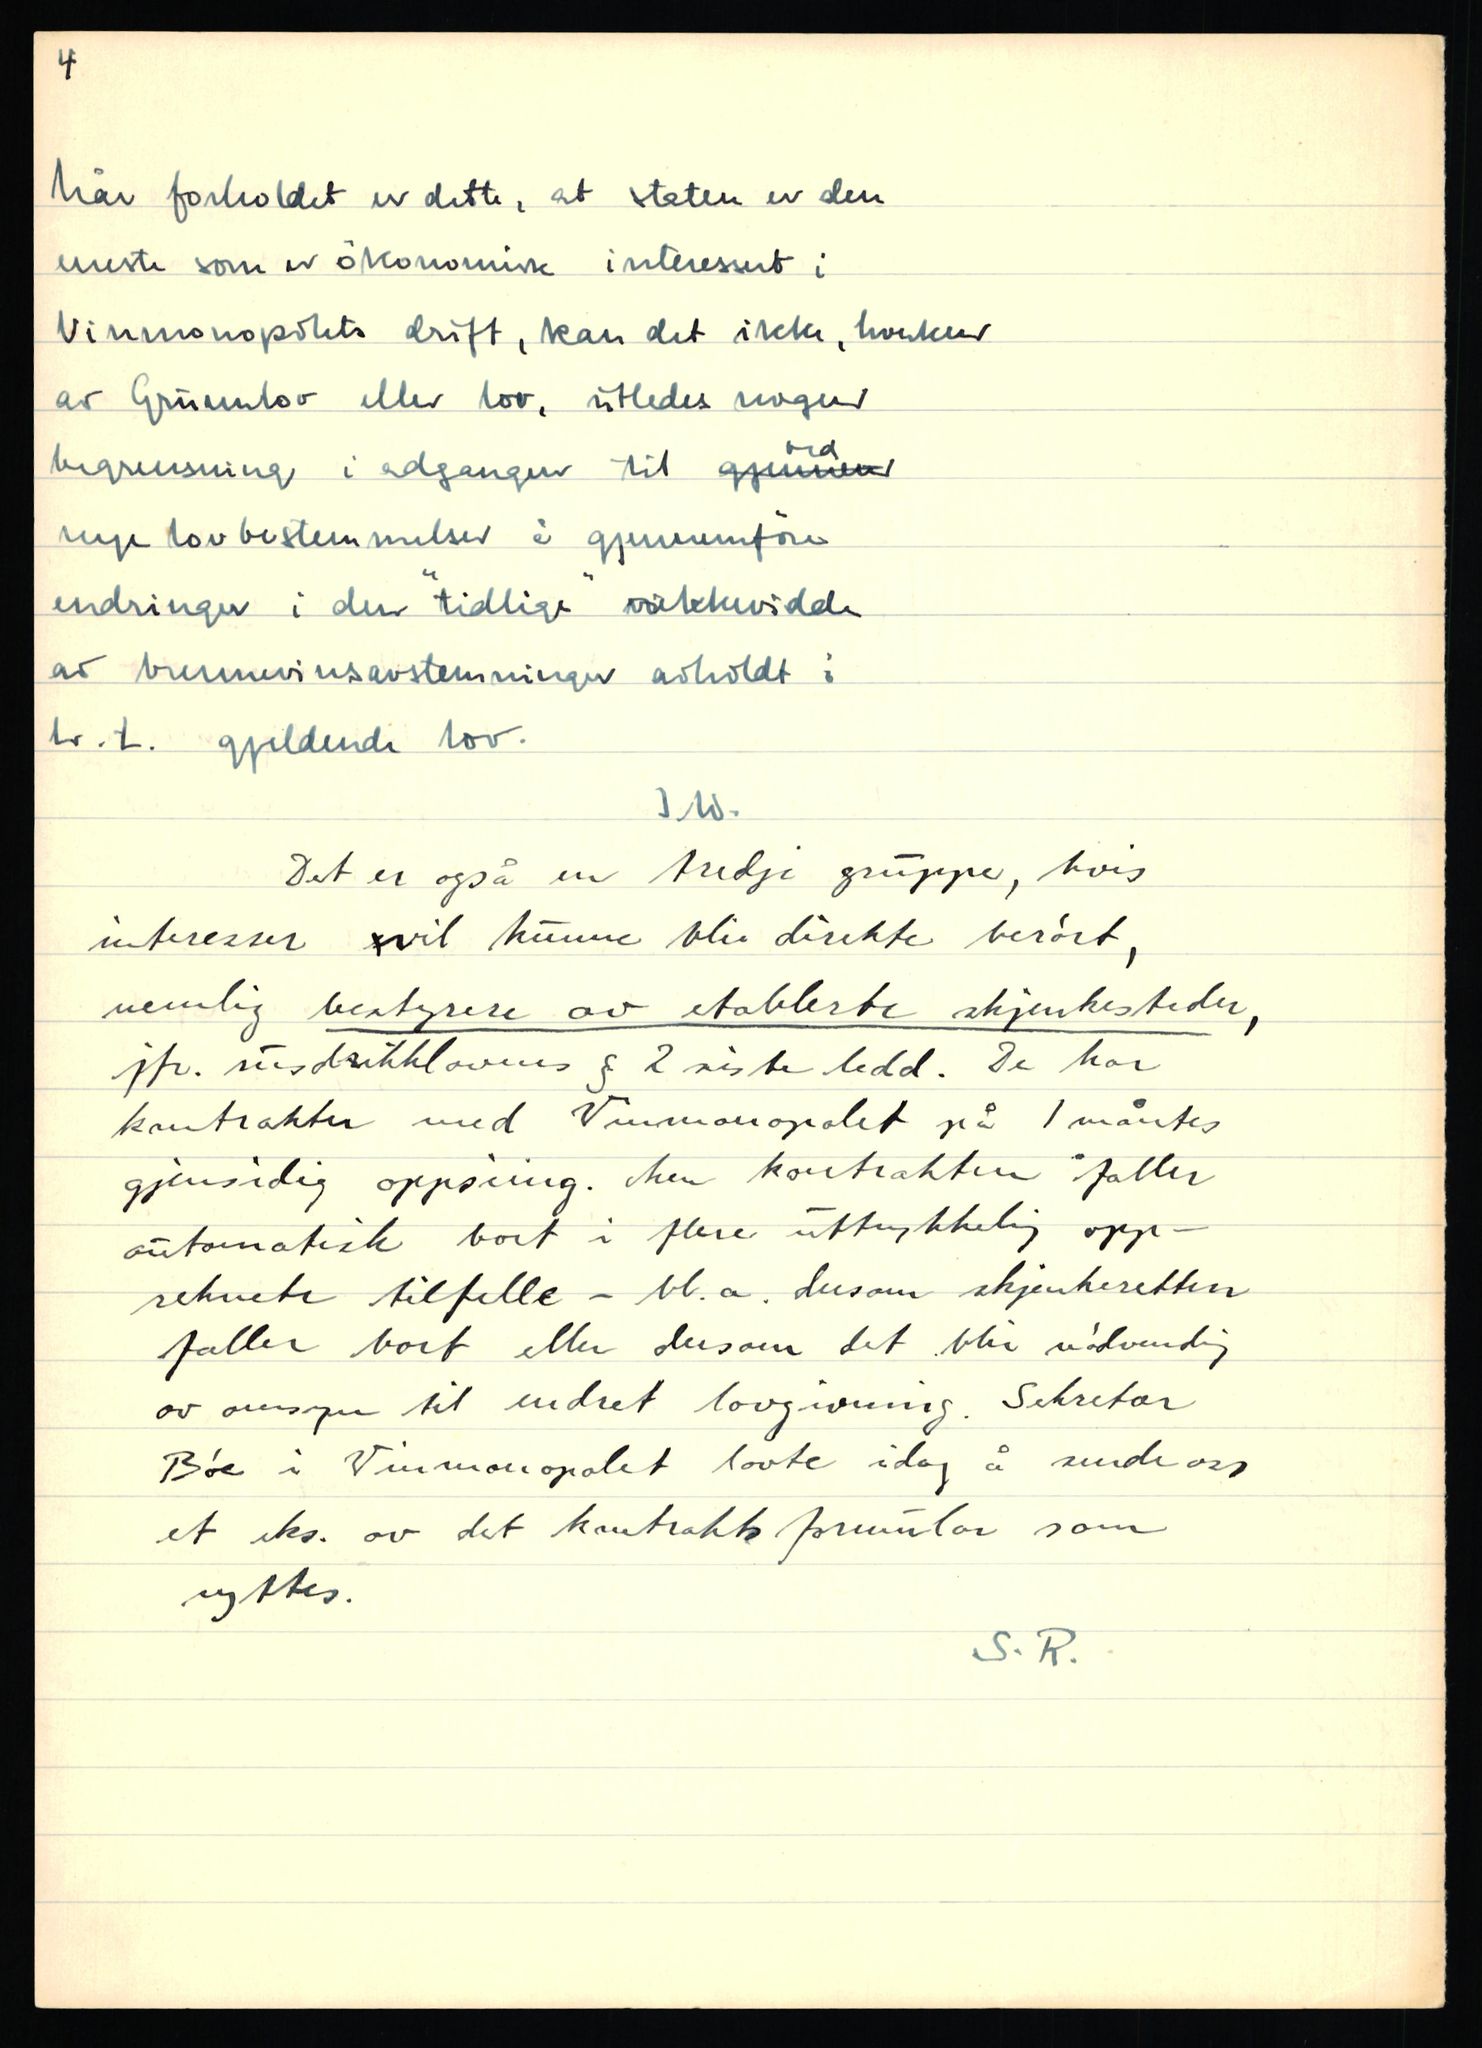 4
Når forholdet er dette, at staten er den
eneste som er økonomisk interessert i
Vinmonopolets drift, kan det ikke, hverken
av Grunnlov eller lov, utledes nogen
begrensning i adgangen til ~~gjennem~~ ved
nye lovbestemmelser å gjennemföre
endringer i den "tidlige" rekkevidde
av brennevinsavstemninger avholdt i
h. t. gjeldende lov.
I W.
Det er også en tredje gruppe, hvis
interesser vil kunne bli direkte berört,
nemlig bestyrere av etablerte skjenkesteder,
jfr. rusdrikklovens § 2 siste ledd. De har
kontrakter med Vinmonopolet på 1 månts
gjensidig oppsiing. Men kontrakten faller
automatisk bort i flere uttrykkelig opp-
reknete tilfelle – bl. a. dersom skjenkeretten
faller bort eller dersom det blir nödvendig
av omsyn til endret lovgivning. Sekretær
Bóe i Vinmonopolet lovte idag å sende oss
et eks. av det kontraktsformular som
nyttes.
S. R.